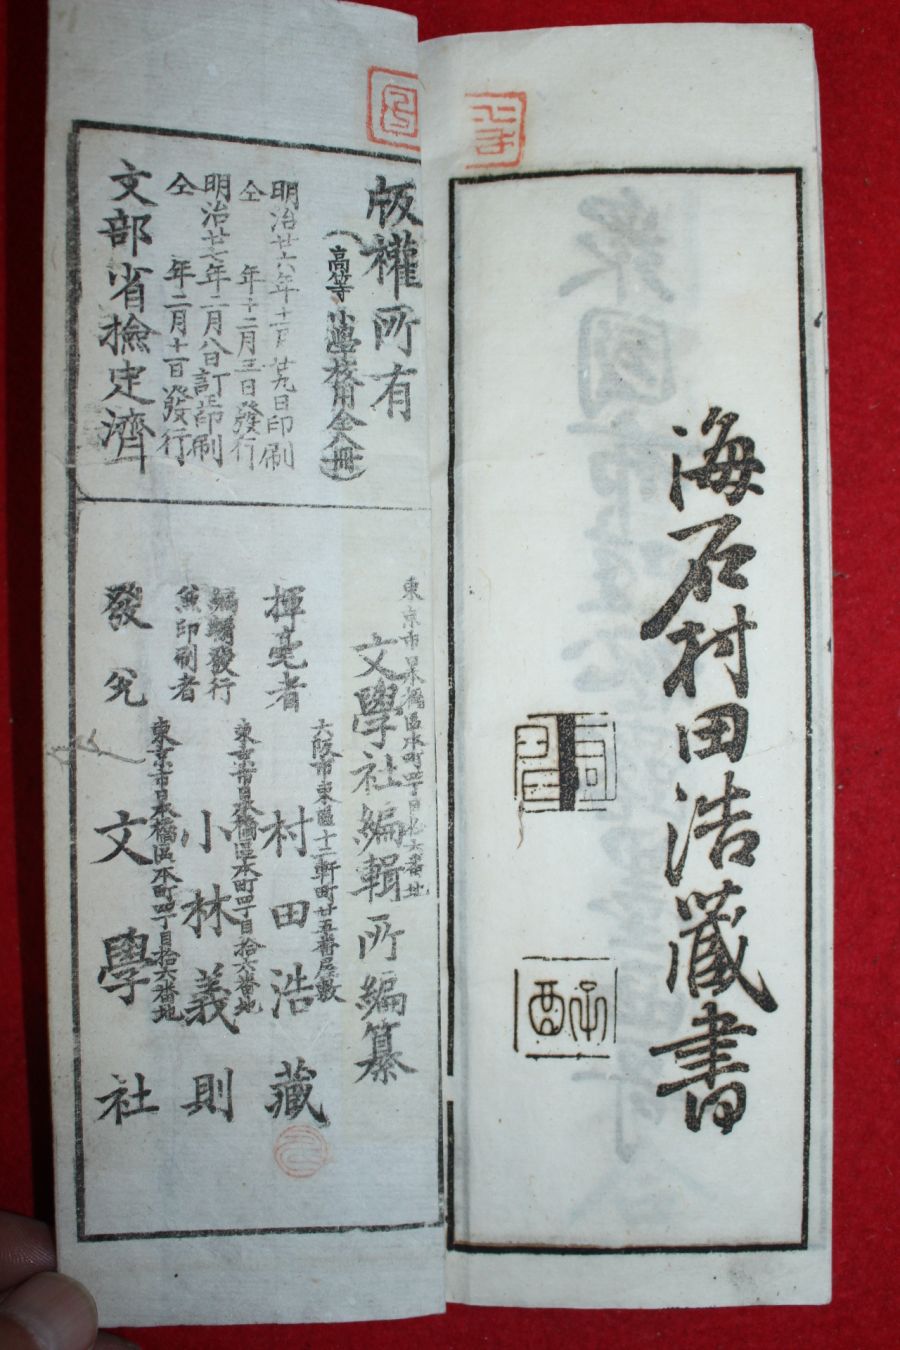 海石村田浩蔵書
版權所有
(高等小學校用全八冊)
明治廿六年十二月廿九日印刷
仝 年十二月三日發行
明治廿七年二月八日訂正印刷
仝 年二月十一日發行
文部省檢定濟
東京市日本橋區本町四丁目拾六番地
文學社編輯所編纂
大阪市東區十二軒町廿五番屋敷
揮毫者 村田浩藏
編輯發行
兼印刷者
東京市日本橋區本町四丁目拾六番地
小林義則
東京市日本橋區本町四丁目拾六番地
發兌 文學社